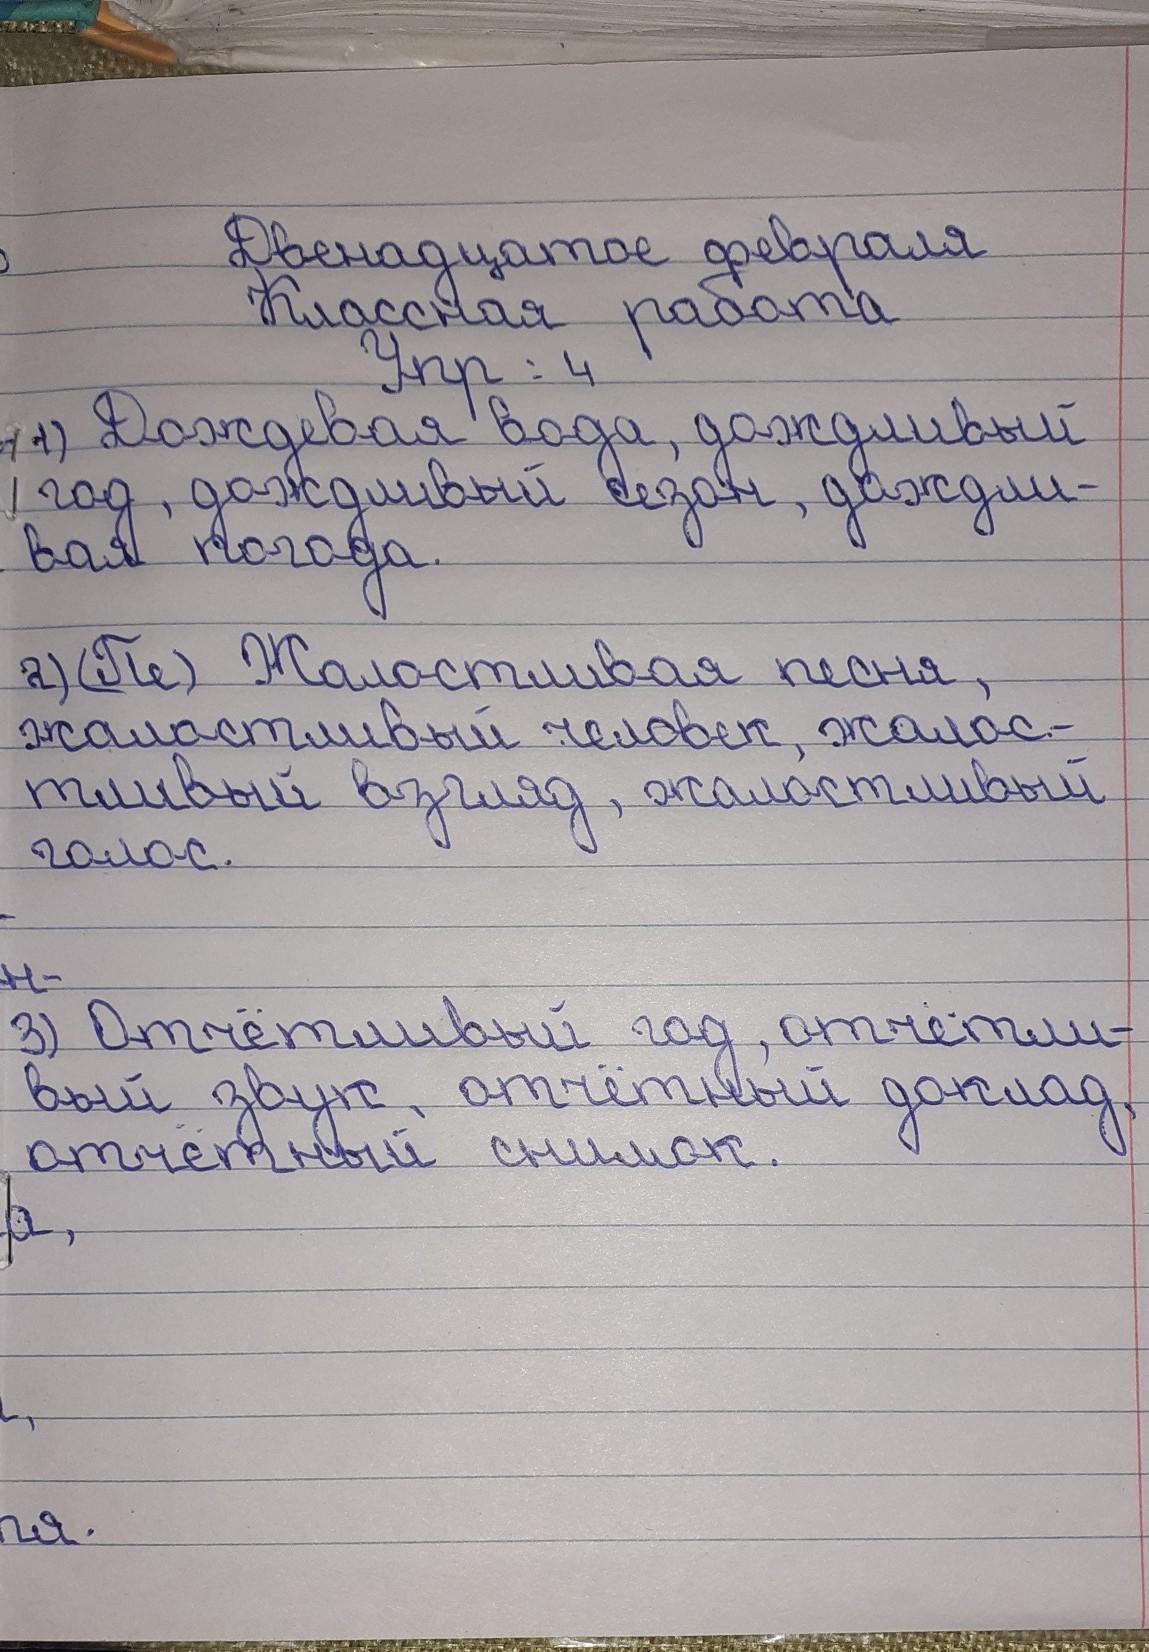 Двенадцатое февраля
Классная работа
Упр : 4
1) Дождевая вода, дождливый
год, дождливый сезон, дождли-
вая погода.
2) (Пе) Жалостливая песня,
жалостливый человек, жалос-
тливый взгляд, жалостливый
голос.
н-
3) Отчётливый год, отчётли-
вый звук, отчётный доклад,
отчётный снимок.
а,
ня.